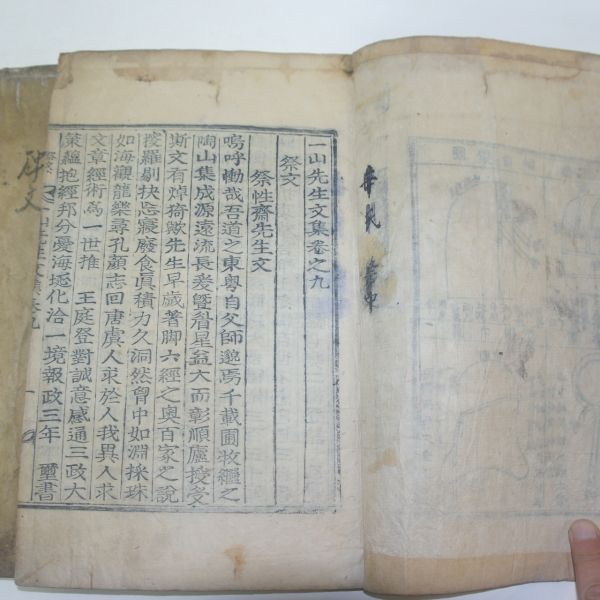 一山先生文集卷之九
祭文
祭性齋先生文
嗚呼慟哉吾道之東粤自父師邈焉千載圃牧繼之
陶山集成源遠流長爰曁星益大而彰順廬授受
斯文有焯猗歟先生早歲著脚六經之奧百家之說
搜羅剔抉忘寢廢食眞積力久洞然胷中如淵採珠
如海觀龍樂尋孔顏志回唐虞人求於人我異人求
文章經術爲一世推 王庭登對誠意感通三政大
策蘊抱經邦分憂海堧化洽一境報政三年 璽書
一山先生文集卷九
祭文